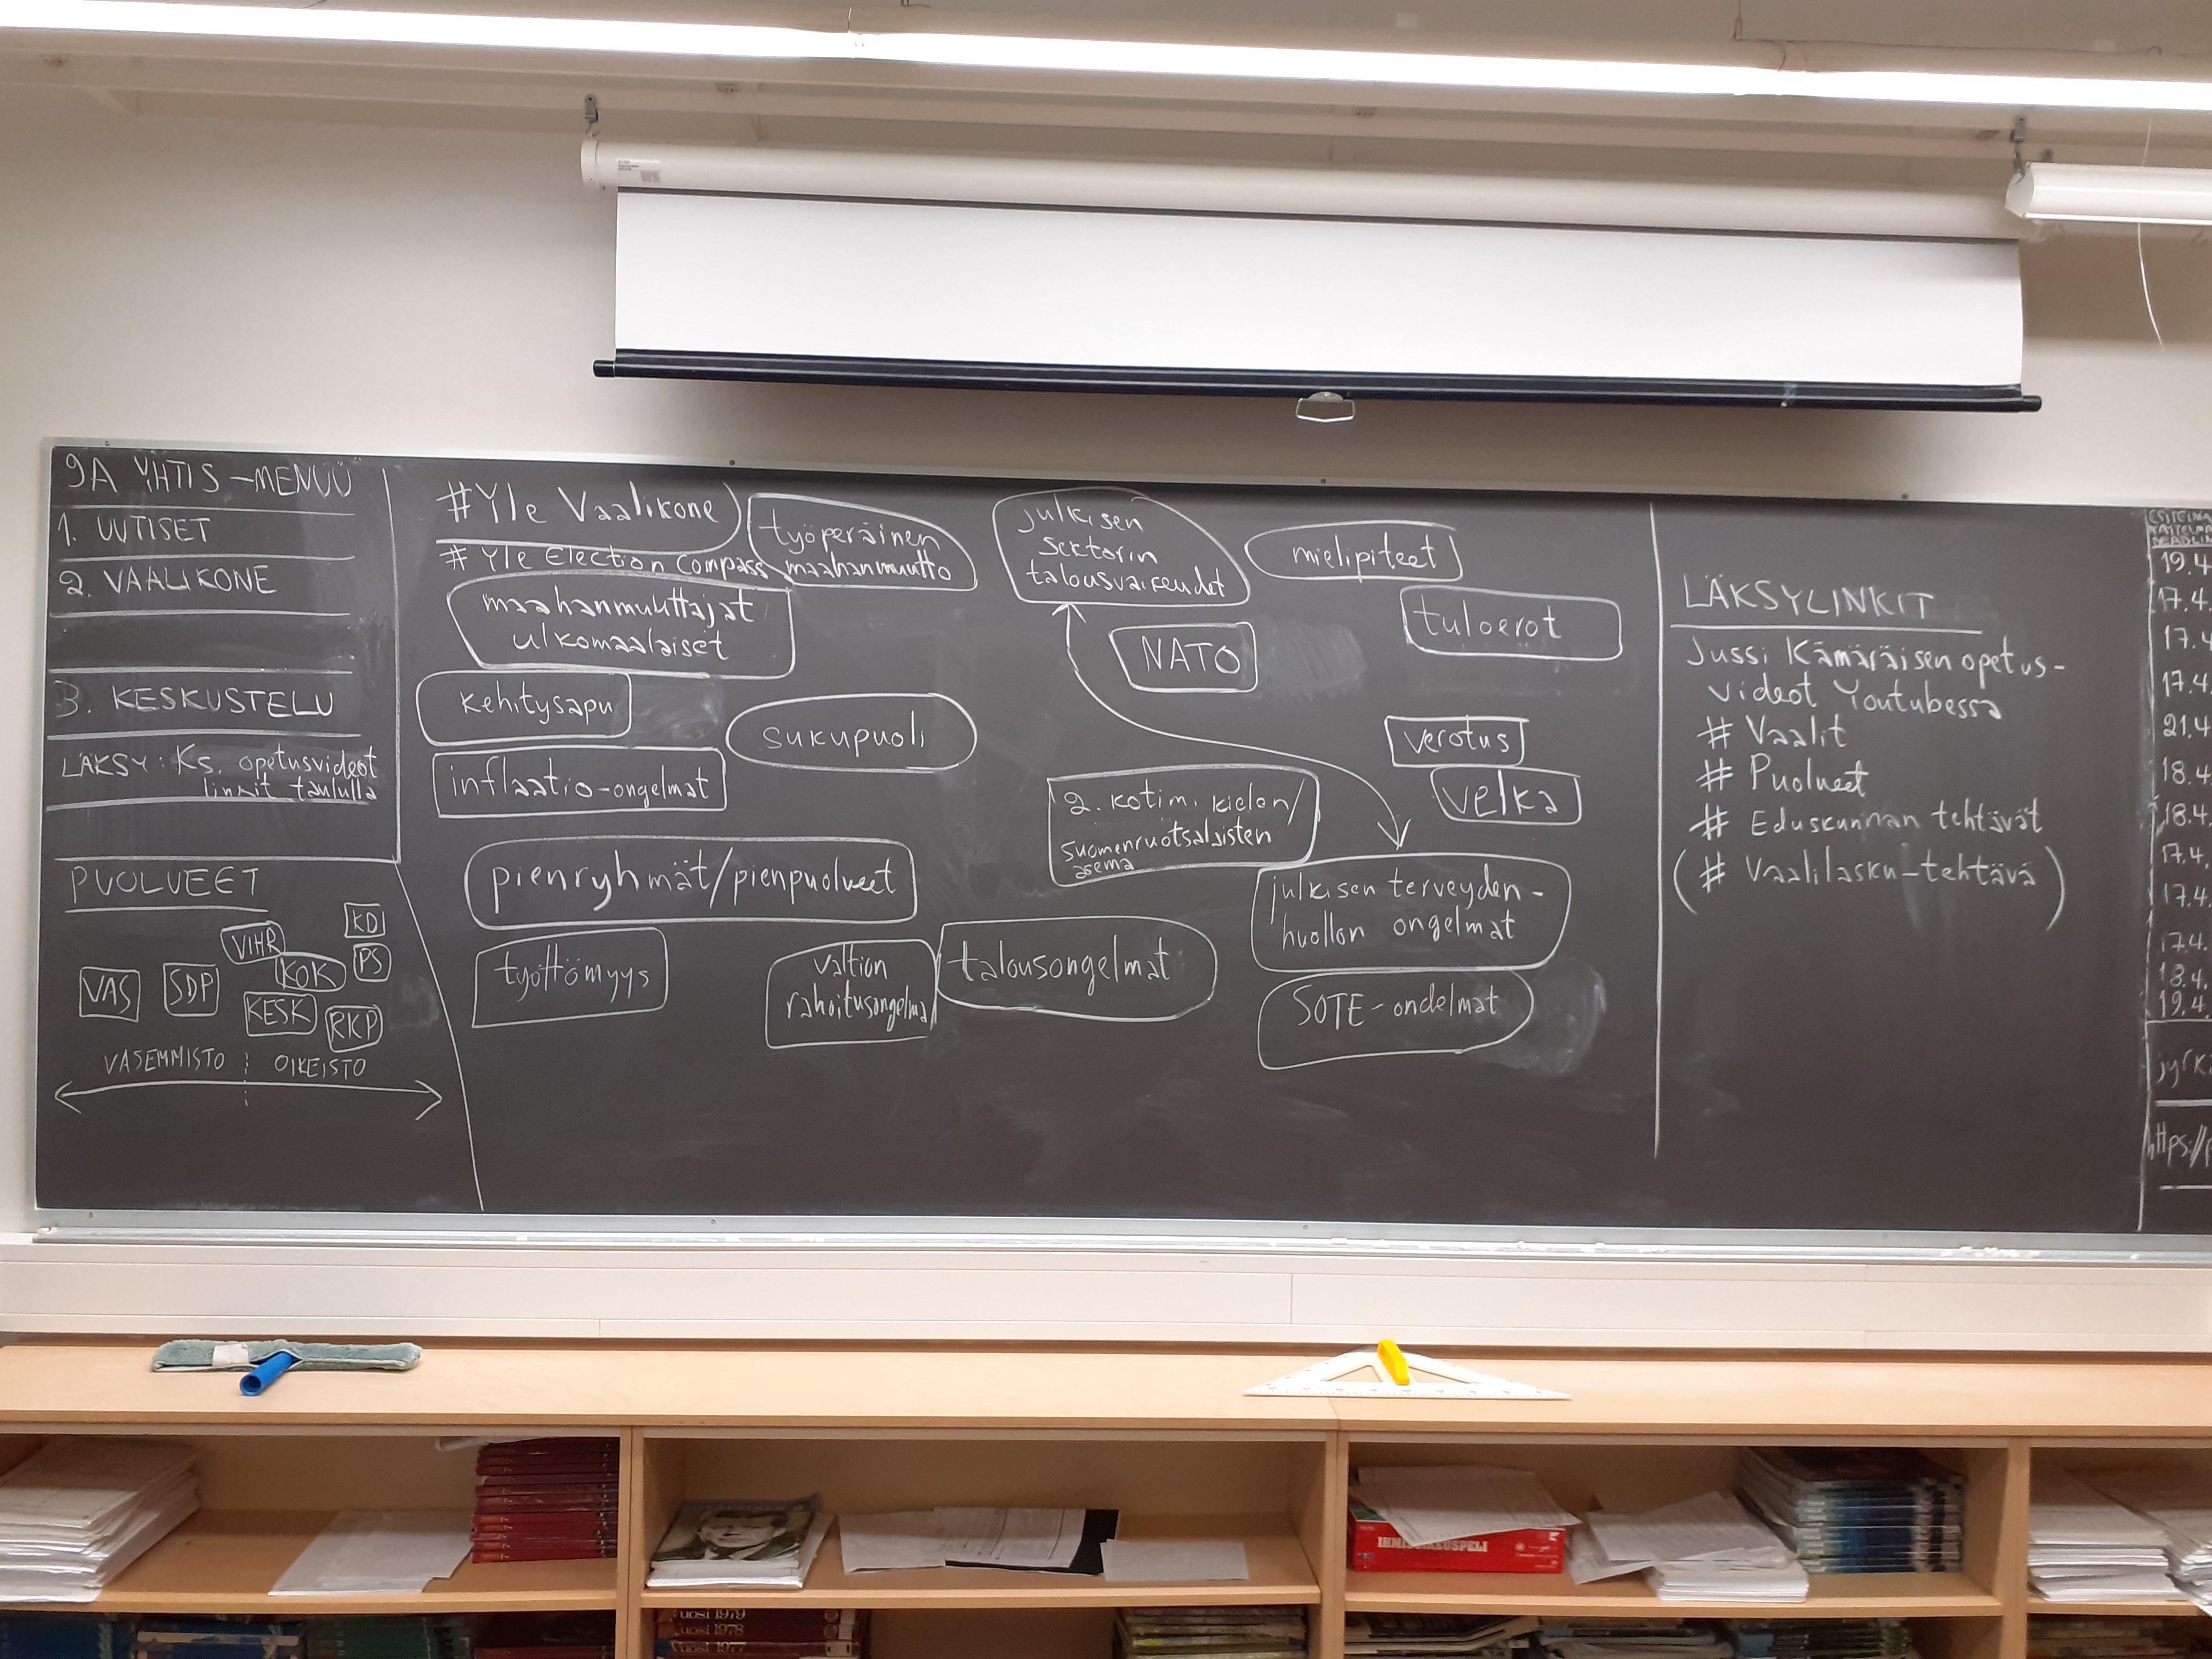 9A YHTIS-MENUU
1. UUTISET
2. VAALIKONE
3. KESKUSTELU
LÄKSY: Ks. opetusvideot
linkit taululla
PUOLUEET
KD
VIHR
PS
KOK
VAS
SDP
KESK
RKP
VASEMMISTO
OIKEISTO
#Yle Vaalikone
# Yle Election Compass
työperäinen
maahanmuutto
maahanmuuttajat
ulkomaalaiset
kehitysapu
sukupuoli
inflaatio-ongelmat
pienryhmät/pienpuolueet
työttömyys
valtion
rahoitusongelmat
talousongelmat
julkisen
sektorin
talousvaikeudet
mielipiteet
tuloerot
NATO
verotus
velka
2. kotim. kielen/
suomenruotsalaisten
asema
julkisen terveyden-
huollon ongelmat
SOTE-ondelmat
LÄKSYLINKIT
Jussi Kämäräisen opetus-
videot Youtubessa
# Vaalit
# Puolueet
# Eduskunnan tehtävät
(# Vaalilasku-tehtävä)
19.4
17.4.
17.4
17.4
21.4
18.4
18.4.
17.4.
17.4.
17.4.
18.4.
19.4.
jyrk
https://
vuosi 1979
vuosi 1978
vuosi 1977